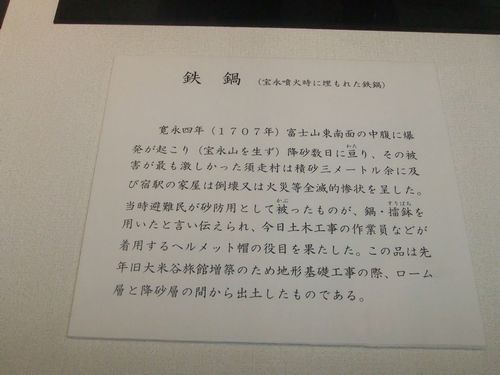 鉄鍋 (宝永噴火時に埋もれた鉄鍋)
寛永四年(1707年)富士山東南面の中腹に爆
発が起こり(宝永山を生ず)降砂数日に亘り、その被
害が最も激しかった須走村は積砂三メートル余に及
び宿駅の家屋は倒壊又は火災等全滅的惨状を呈した。
当時避難民が砂防用として被ったものが、鍋・擂鉢を
用いたと言い伝えられ、今日土木工事の作業員などが
着用するヘルメット帽の役目を果たした。この品は先
年旧大米谷旅館増築のため地形基礎工事の際、ローム
層と降砂層の間から出土したものである。